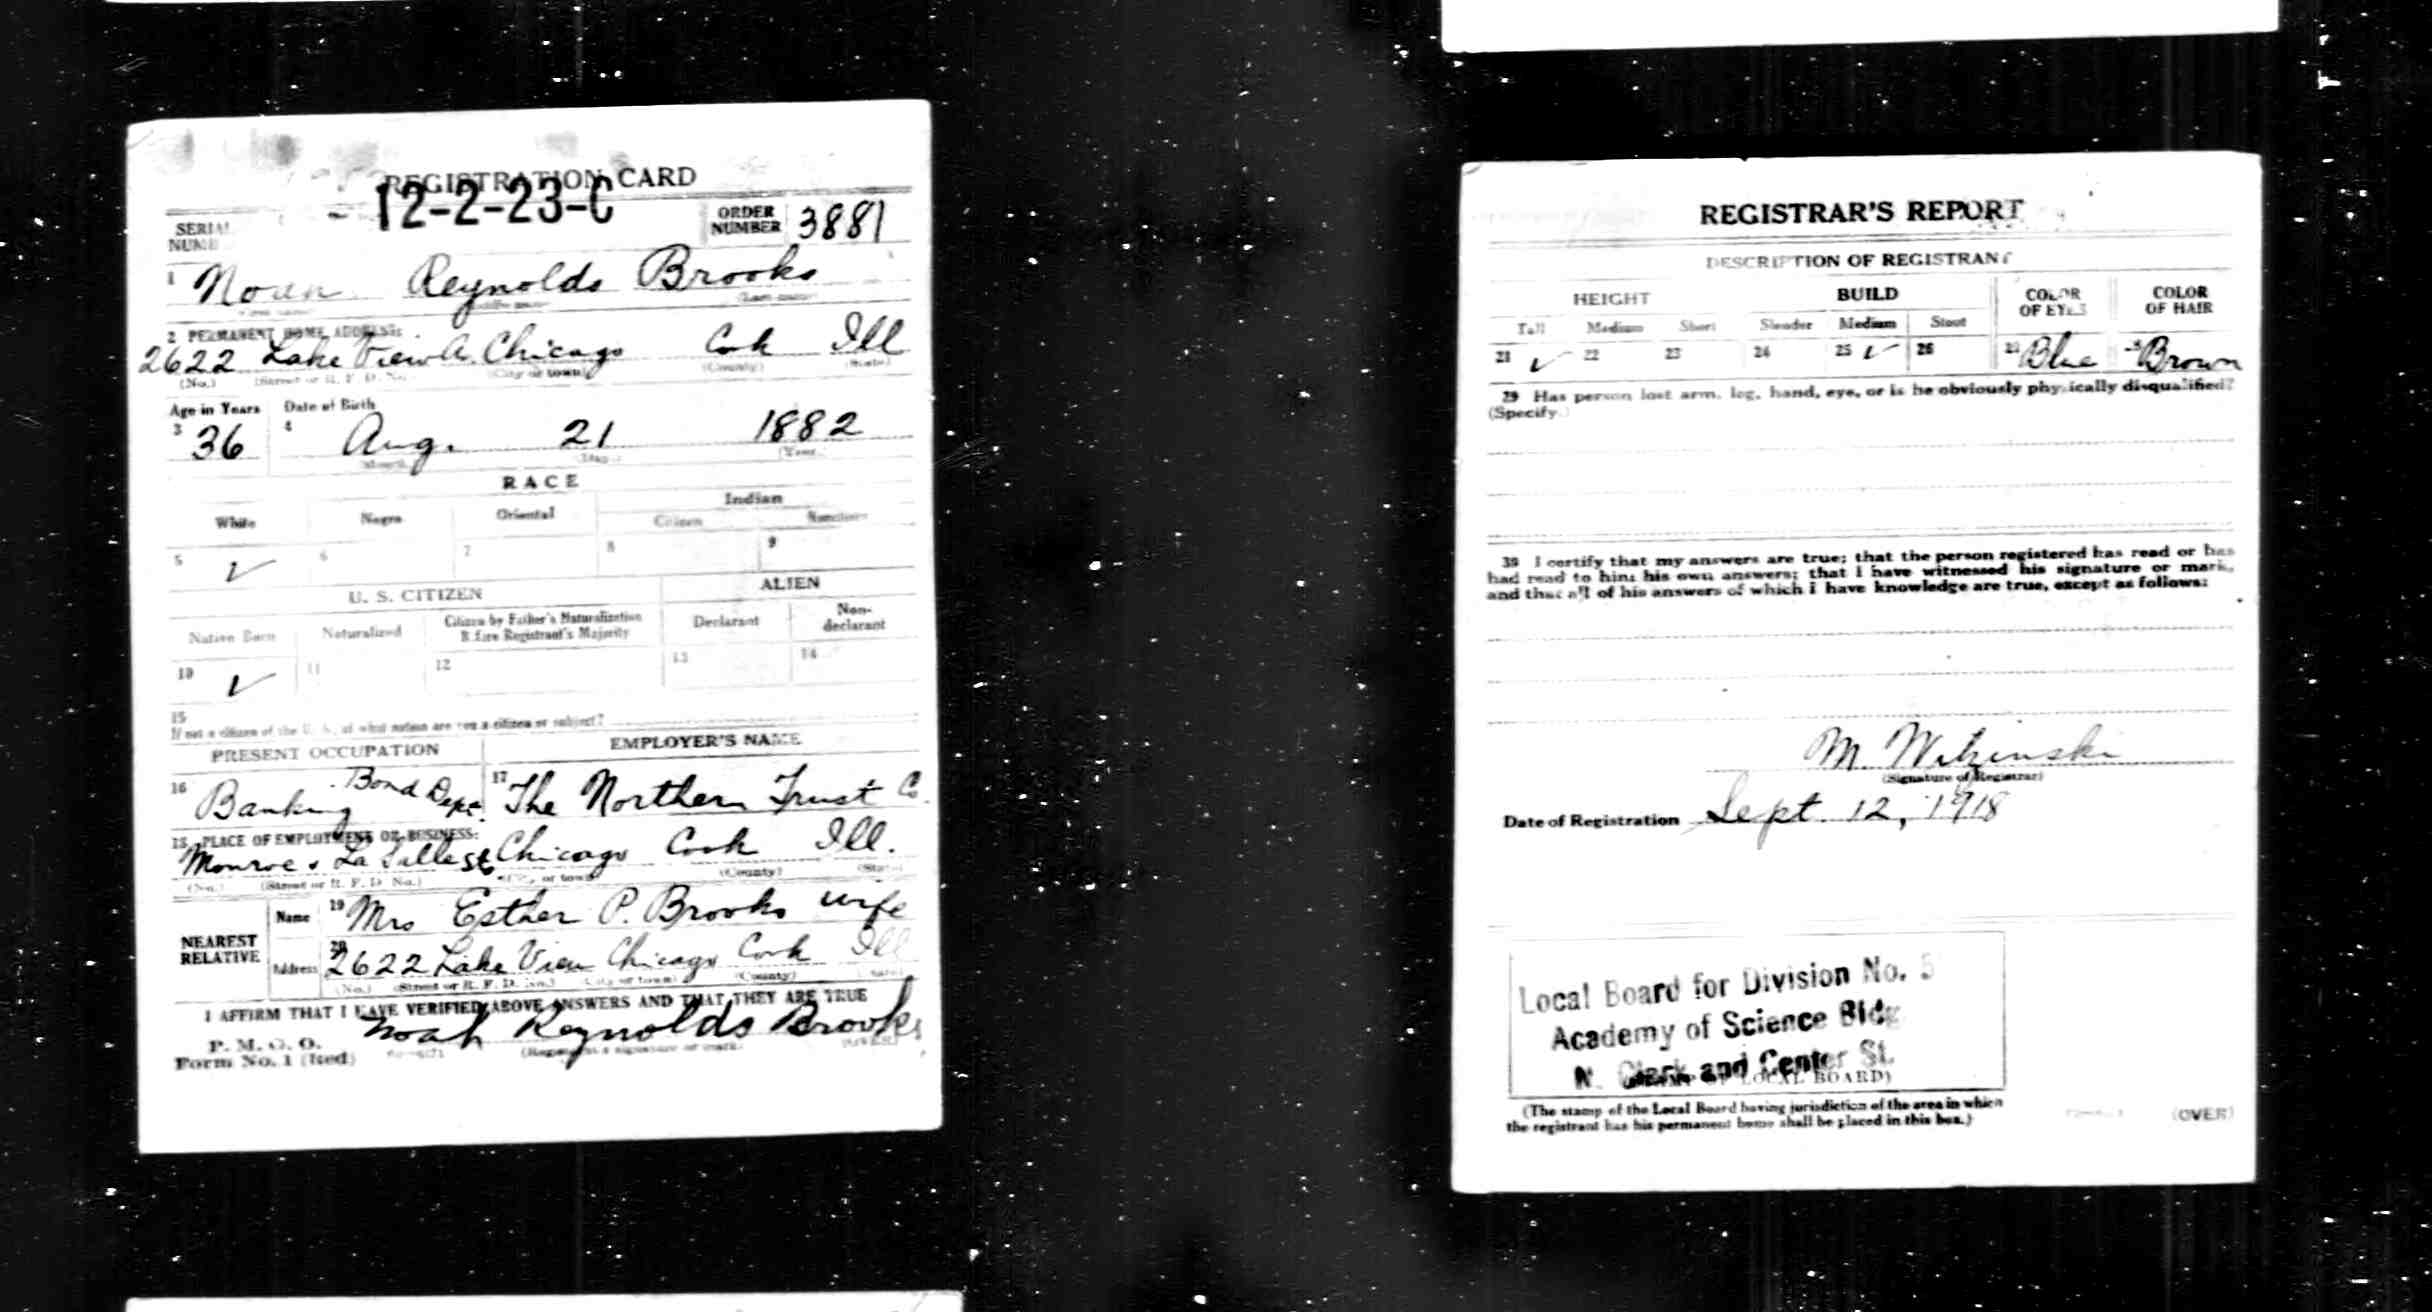 REGISTRATION CARD
12-2-23-C
SERIAL NUMB
ORDER NUMBER 3881
1 Noah Reynolds Brooks
(Last name)
2 PERMANENT HOME ADDRESS:
2622 Lake View A. Chicago Cook Ill
(No.) (Street or R. F. D. No.) (City or town) (County) (State)
Age in Years Date of Birth
3 36 4 Aug. 21 1882
(Month) (Day) (Year)
RACE
White Negro Oriental Indian
Citizen Noncitizen
5 ✓ 6 7 8 9
U. S. CITIZEN ALIEN
Native Born Naturalized Citizen by Father's Naturalization Before Registrant's Majority Declarant Non-declarant
10 ✓ 11 12 13 14
15
If not a citizen of the U. S., of what nation are you a citizen or subject?
PRESENT OCCUPATION EMPLOYER'S NAME
16 Banking Bond Dept. 17 The Northern Trust C.
18 PLACE OF EMPLOYMENT OR BUSINESS:
Monroe & La Salle St Chicago Cook Ill.
(No.) (Street or R. F. D. No.) (City or town) (County) (State)
NEAREST RELATIVE
Name 19 Mrs Esther P. Brooks wife
Address 20 2622 Lake View Chicago Cook Ill
(No.) (Street or R. F. D. No.) (City or town) (County) (State)
I AFFIRM THAT I HAVE VERIFIED ABOVE ANSWERS AND THAT THEY ARE TRUE
P. M. G. O.
Form No. 1 (Red)
Noah Reynolds Brooks
(Registrant's signature or mark) (OVER)
REGISTRAR'S REPORT
DESCRIPTION OF REGISTRANT
HEIGHT BUILD COLOR OF EYES COLOR OF HAIR
Tall Medium Short Slender Medium Stout
21 ✓ 22 23 24 25 ✓ 26 Blue Brown
29 Has person lost arm, leg, hand, eye, or is he obviously physically disqualified?
(Specify.)
30 I certify that my answers are true; that the person registered has read or has
had read to him his own answers; that I have witnessed his signature or mark,
and that all of his answers of which I have knowledge are true, except as follows:
M.
(Signature of Registrar)
Date of Registration Sept. 12, 1918
Local Board for Division No. 5
Academy of Science Bldg
N. Clark and Center St.
LOCAL BOARD)
(The stamp of the Local Board having jurisdiction of the area in which
the registrant has his permanent home shall be placed in this box.)
(OVER)